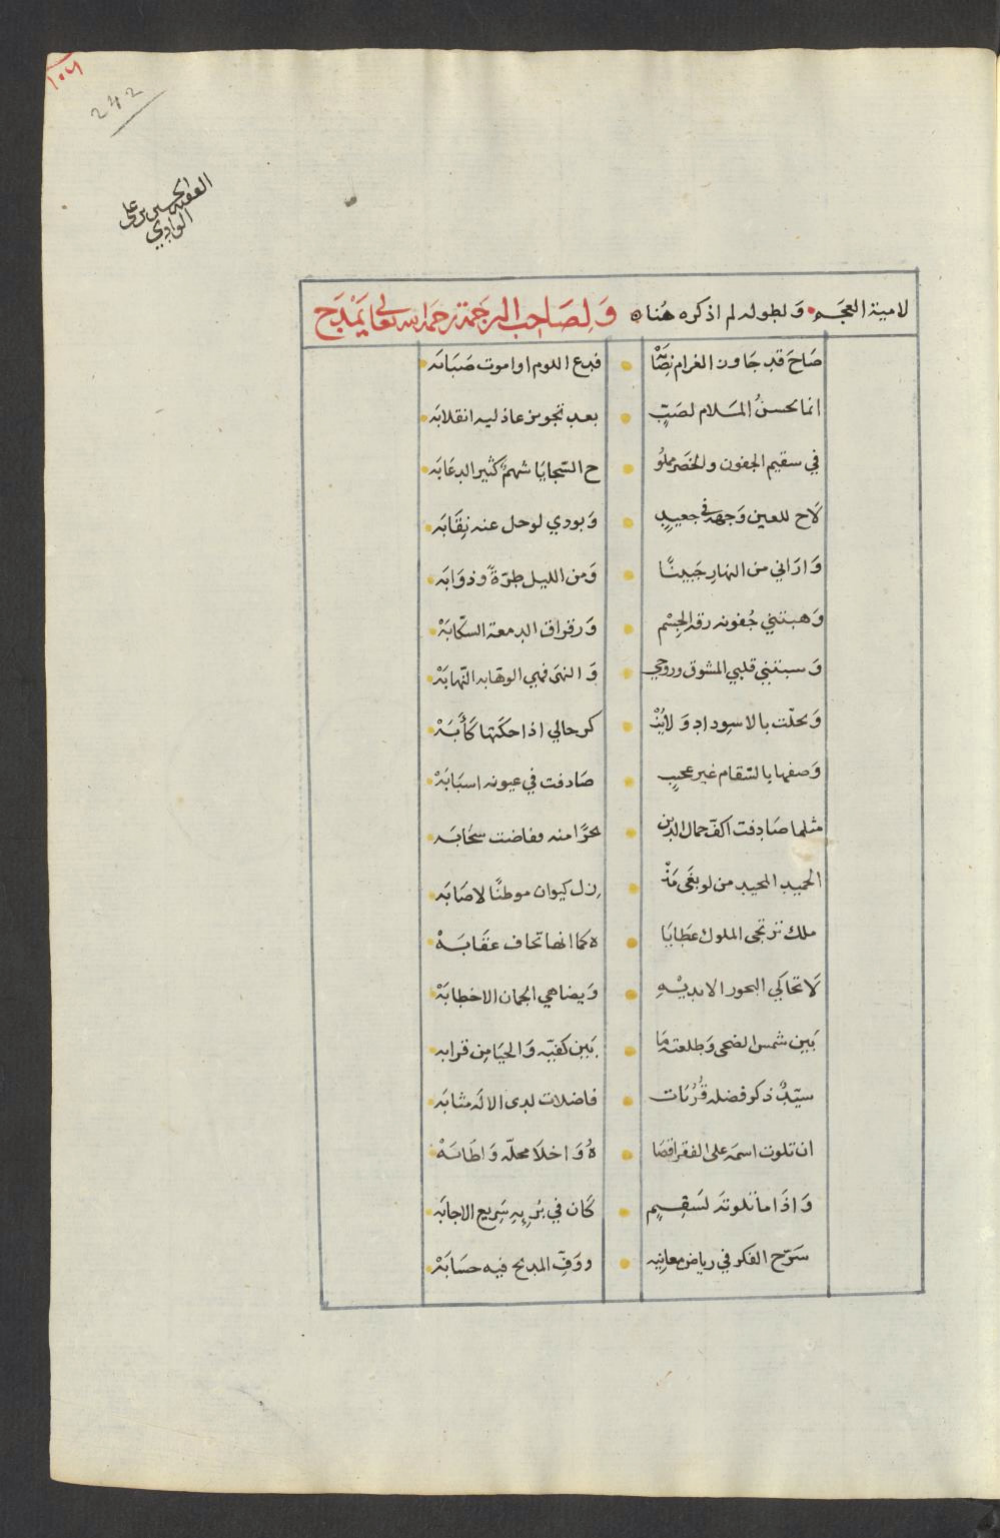 ١٥٦
242
الفقيه الحسين بن علي
الوادي
لامية العجم • ولطوله لم اذكره هنا ه ولصاحب الترجمة رحمه الله تعالى يمدح
صاح قد جاوز الغرام نصابه • فدع اللوم او اموت صبابه
انما يحسن السلام لصب • بعد تجويز عاذليه انقلابه
في سقيم الجفون والخصر مملو • ح السجايا شهم كثير الدعابه
لاح للعين وجهه في جعيد • وبودي لو حل عنه نقابه
واراني من النهار جبينا • ومن الليل طرة وذوابه
وهبتني جفونه رقة الجسم • ورقراق الدمعة السكابه
وسبتني قلبي المشوق وروحي • والنهى فهي الوهابه النهابه
وتحلت بالاسوداد ولابد • كر حالي اذا حكتها كأبه
وصفها بالسقام غير عجيب • صادفت في عيونه اسبابه
مثلما صادفت اكف جمال الدين • بحرا منه وفاضت سحابه
الحميد المجيد من لو بغى من • زل كيوان موطنا لاصابه
ملك ترتجى الملوك عطايا • ه كما انها تخاف عقابه
لا تحاكي البحور الا يديه • ويضاهي الجمان الا خطابه
بين شمس الضحى وطلعته ما • بين كفيه والحيا من قرابه
سيد ذكر فضله قربات • فاضلات لدى الاله مثابه
ان تلوت اسمه على الفقر اقصا • ه واخلا محله واطابه
واذا ما تلوته لسقيم • كان في برءه سريع الاجابه
سرح الفكر في رياض معانيه • ووف المديح فيه حسابه